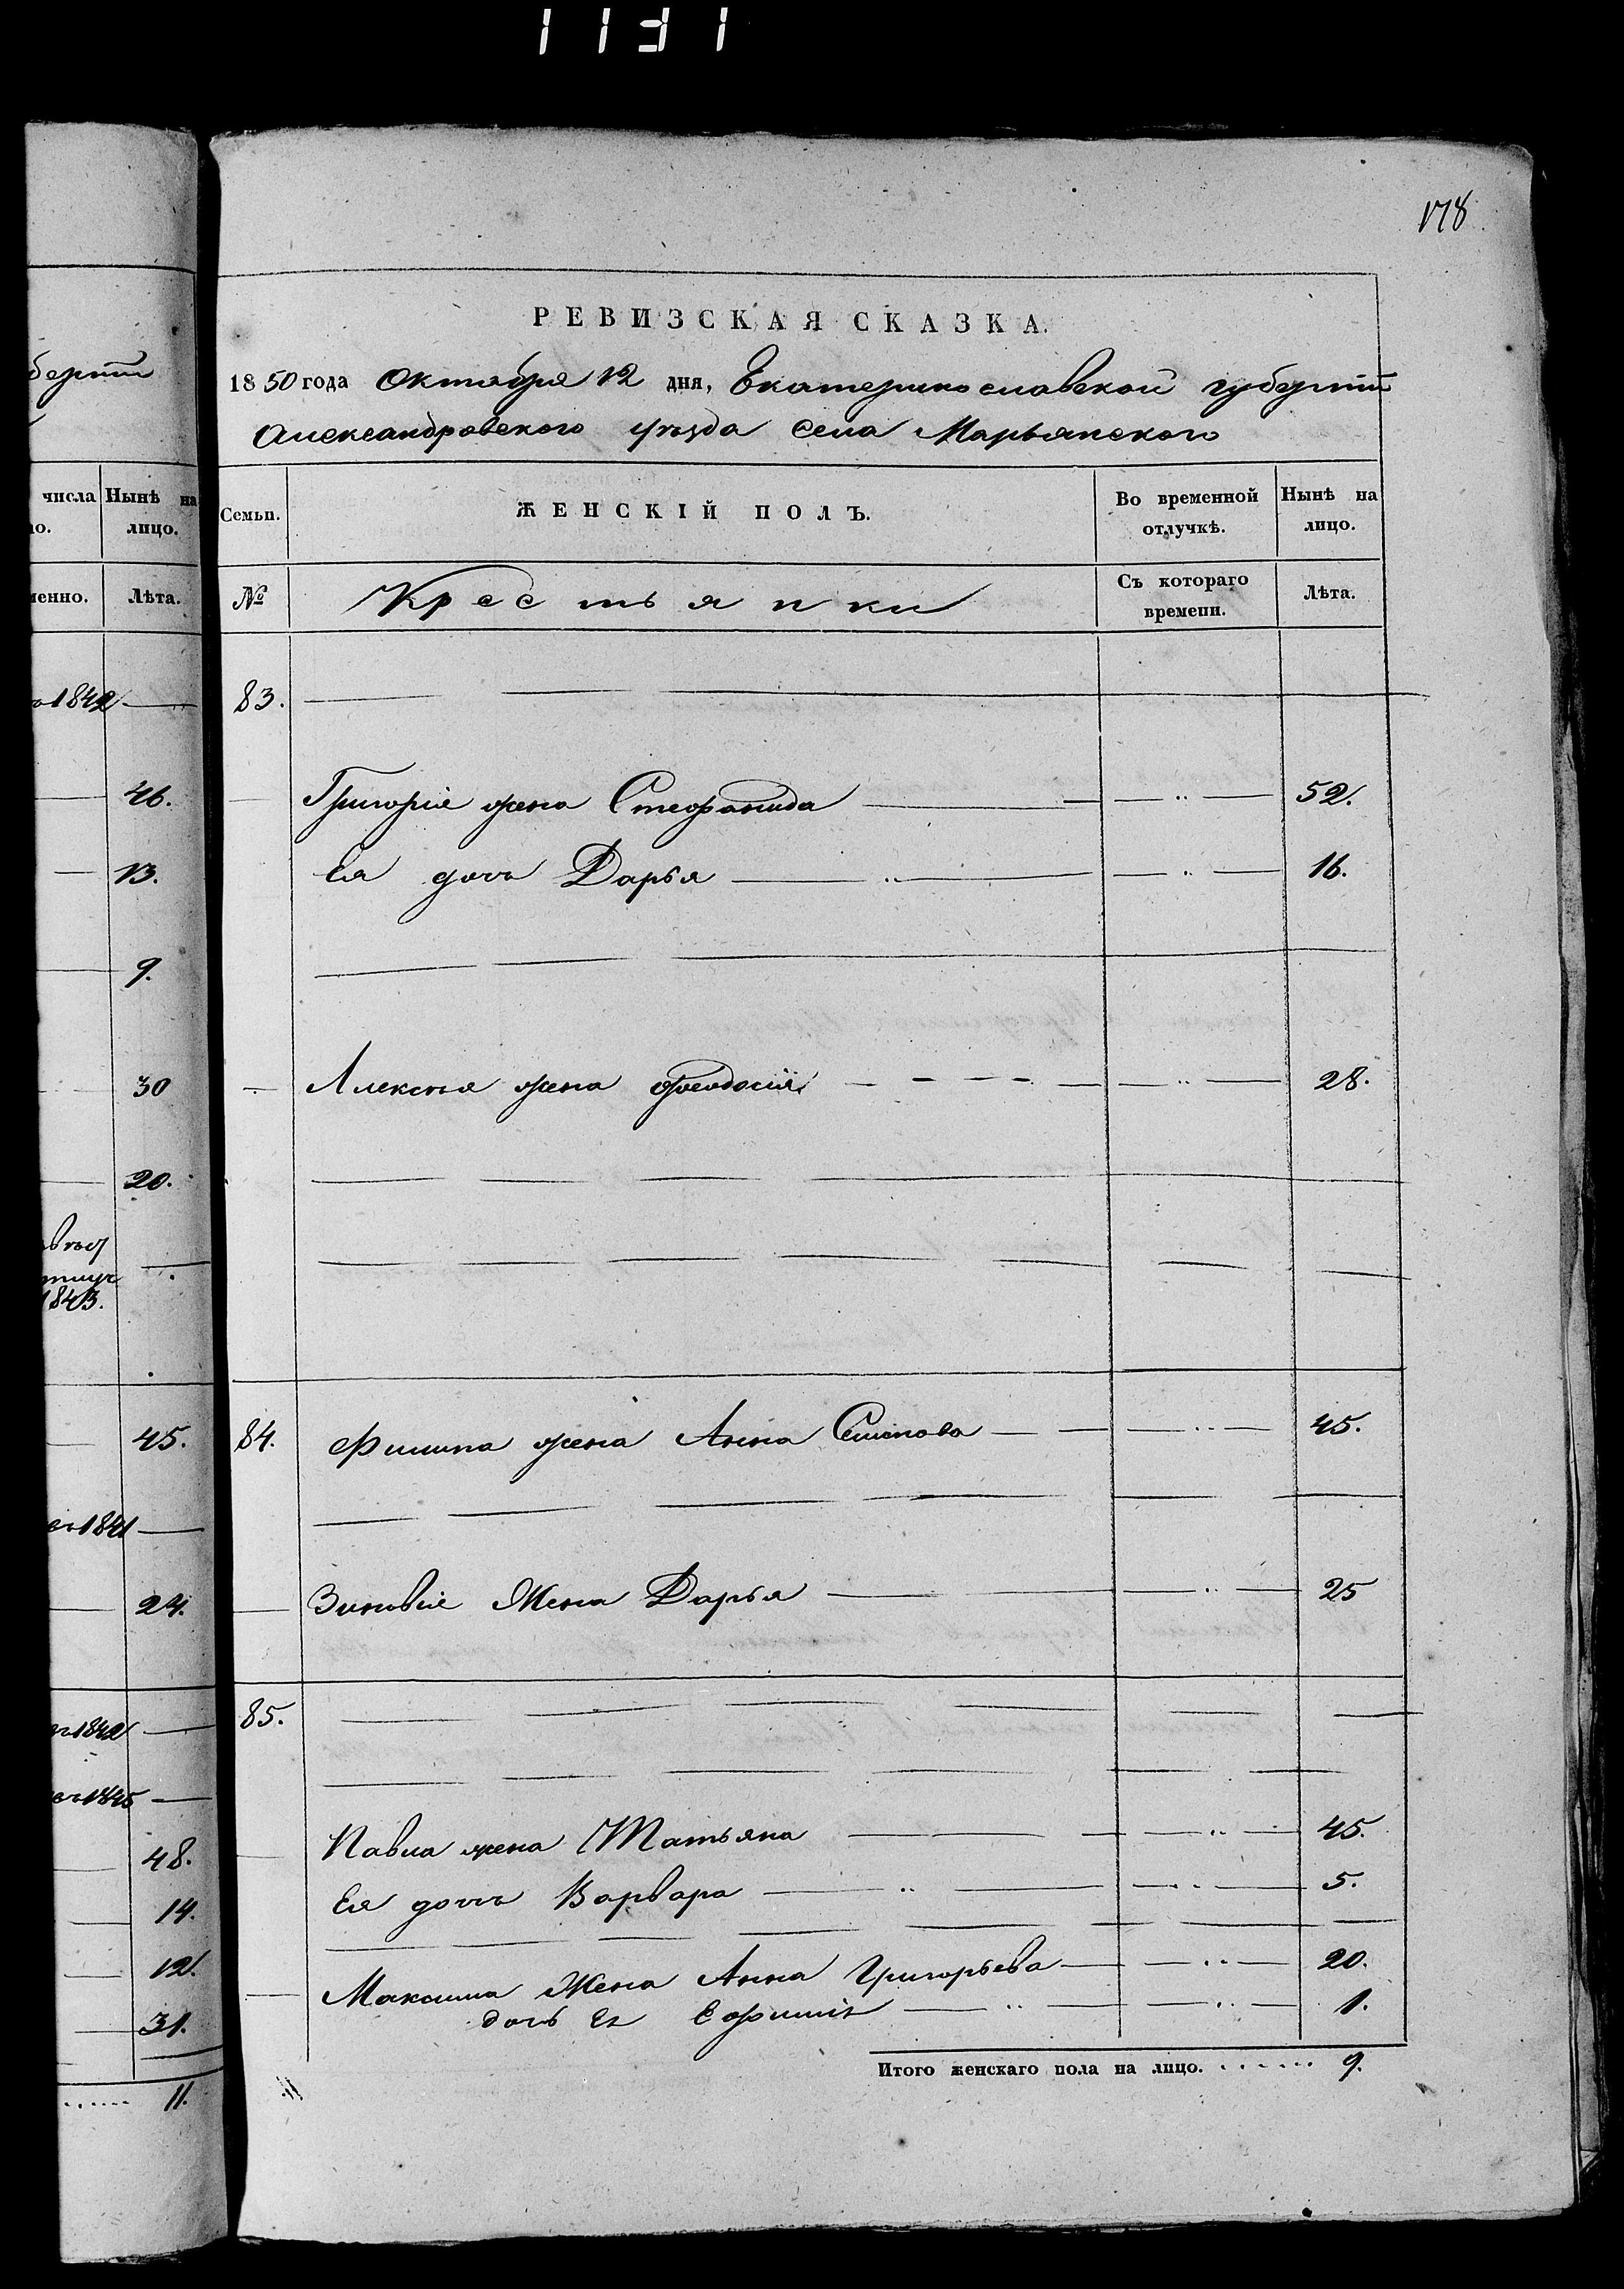 1131
178
РЕВИЗСКАЯ СКАЗКА.
1850 года Октября 12 дня, Екатеринославской губерніи
Александровского уѣзда Села Марьянского
числа Нынѣ на
ло. лицо.
менно. Лѣта.
1842
46.
13.
9.
30
20.
1843.
45.
1841
24.
1842
1845
48.
14.
12.
31.
11.
Семьи. ЖЕНСКІЙ ПОЛЪ. Во временной отлучкѣ. Нынѣ на лицо.
№ Крестьянки Съ котораго времени. Лѣта.
83.
Григорія жена Стефанида 52.
Ея дочь Дарья 16.
Алексѣя жена Феодосія 28.
84. Филипа жена Анна Семенова 45.
Зиновіе Жена Дарья 25
85.
Павла жена Татьяна 45.
Ея дочь Варвара 5.
Максима Жена Анна Григорьева 20.
дочь Ея 1.
Итого женскаго пола на лицо. 9.